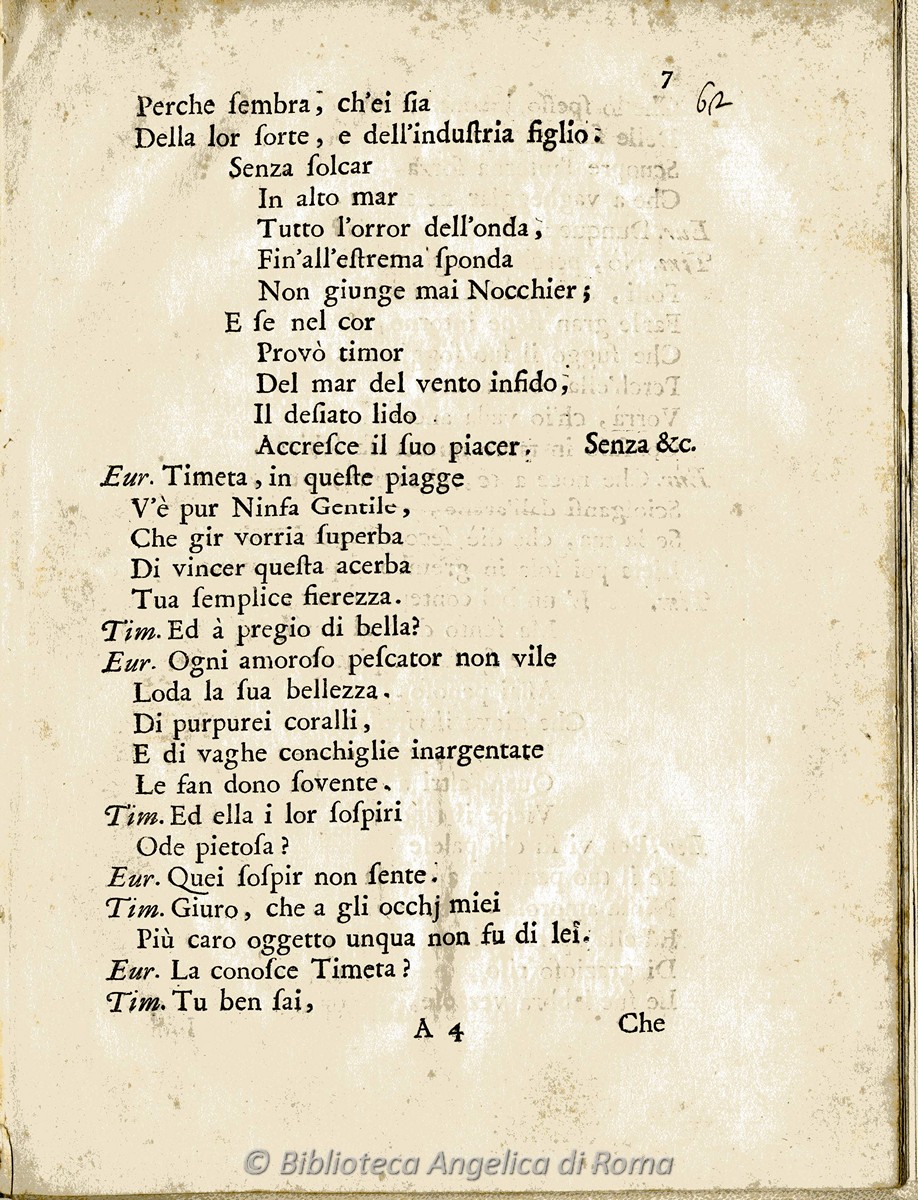 7
62
Perche ſembra, ch'ei ſia
Della lor ſorte, e dell'induſtria figlio.
Senza ſolcar
In alto mar
Tutto l'orror dell'onda,
Fin'all'eſtrema ſponda
Non giunge mai Nocchier;
E ſe nel cor
Provò timor
Del mar del vento infido,
Il deſiato lido
Accreſce il ſuo piacer. Senza &c.
Eur. Timeta, in queſte piagge
V'è pur Ninfa Gentile,
Che gir vorria ſuperba
Di vincer queſta acerba
Tua ſemplice fierezza.
Tim. Ed à pregio di bella?
Eur. Ogni amoroſo peſcator non vile
Loda la ſua bellezza.
Di purpurei coralli,
E di vaghe conchiglie inargentate
Le fan dono ſovente.
Tim. Ed ella i lor ſoſpiri
Ode pietoſa?
Eur. Quei ſoſpir non ſente.
Tim. Giuro, che a gli occhj miei
Più caro oggetto unqua non fu di lei.
Eur. La conoſce Timeta?
Tim. Tu ben ſai,
A 4 Che
© Biblioteca Angelica di Roma